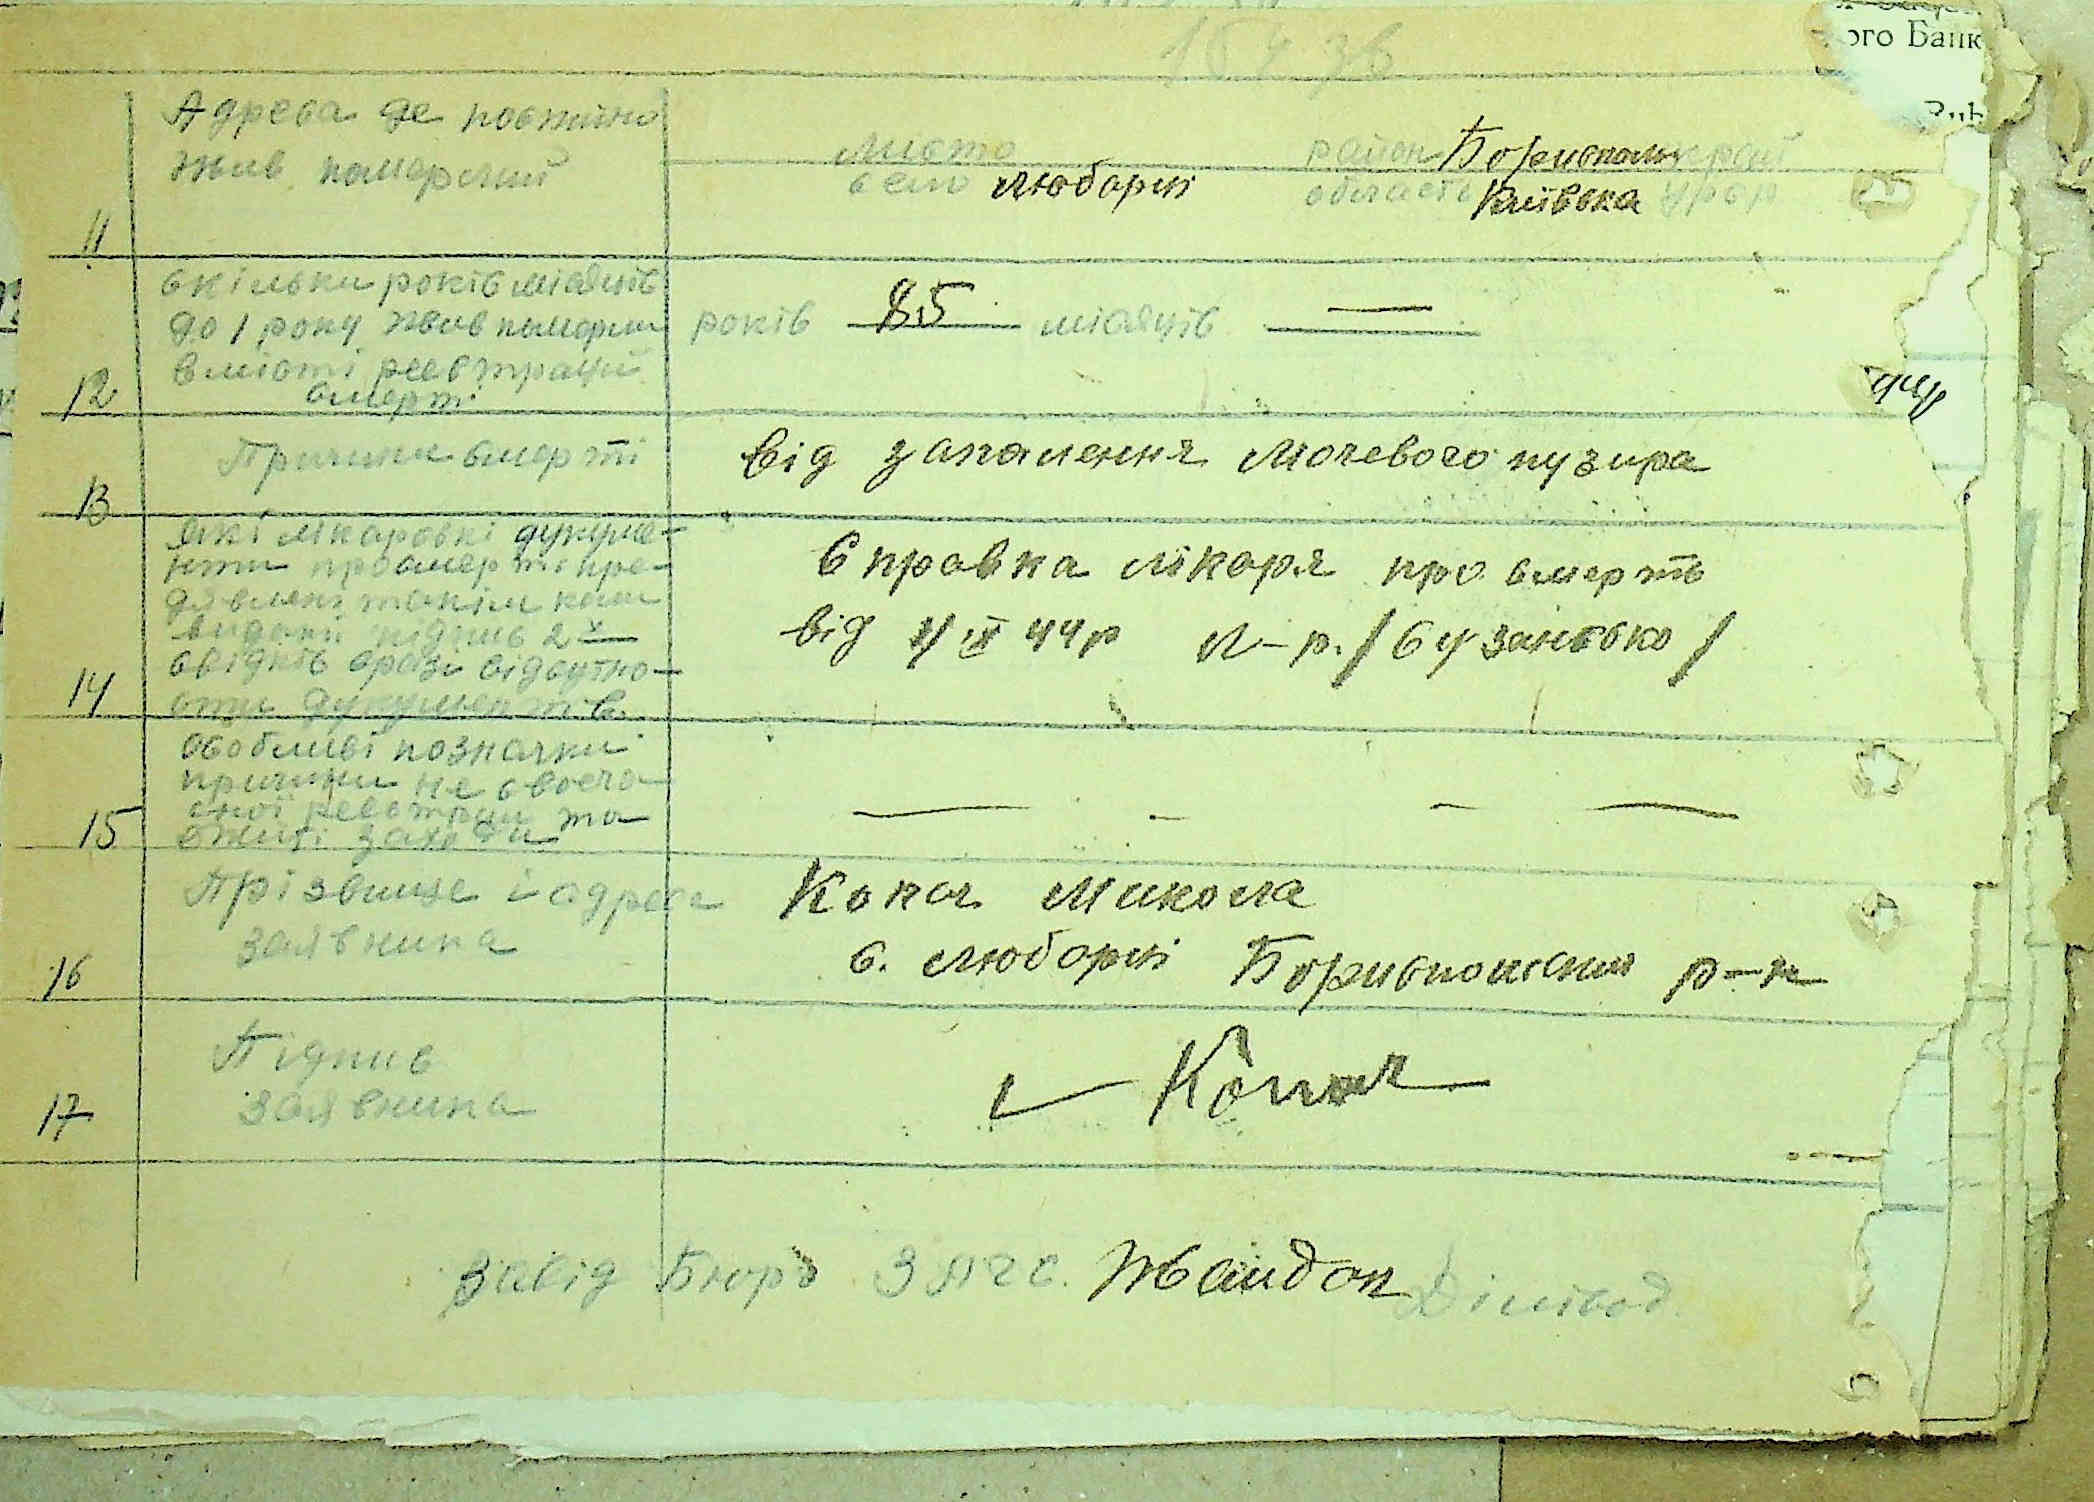 ого Банк
Адреса де постійно
жив померший
місто район Бориспольск край
село Любарці область Київська УРСР
11
скільки років місяців
до 1 року жив померши
в місті реєстрації
смерті
років 85 місяців —
12
Причина смерті
від запалення мочевого пузира
13
які лікарські дукуме-
нти про смерть пре-
підпис 2х
свідків вразі відсутно-
сти дукументів
Справка лікаря про смерть
від IX 44р Л-р.
14
особливі позначки
причини не своєча
сної реєстрац та
вжиті заходи
— - - —
15
Прізвище і адреса
заявника
Копач Микола
с. Любарці Бориспольский р-н
16
Підпис
заявника
Копач
17
Завід Бюро ЗАГС. Діловод